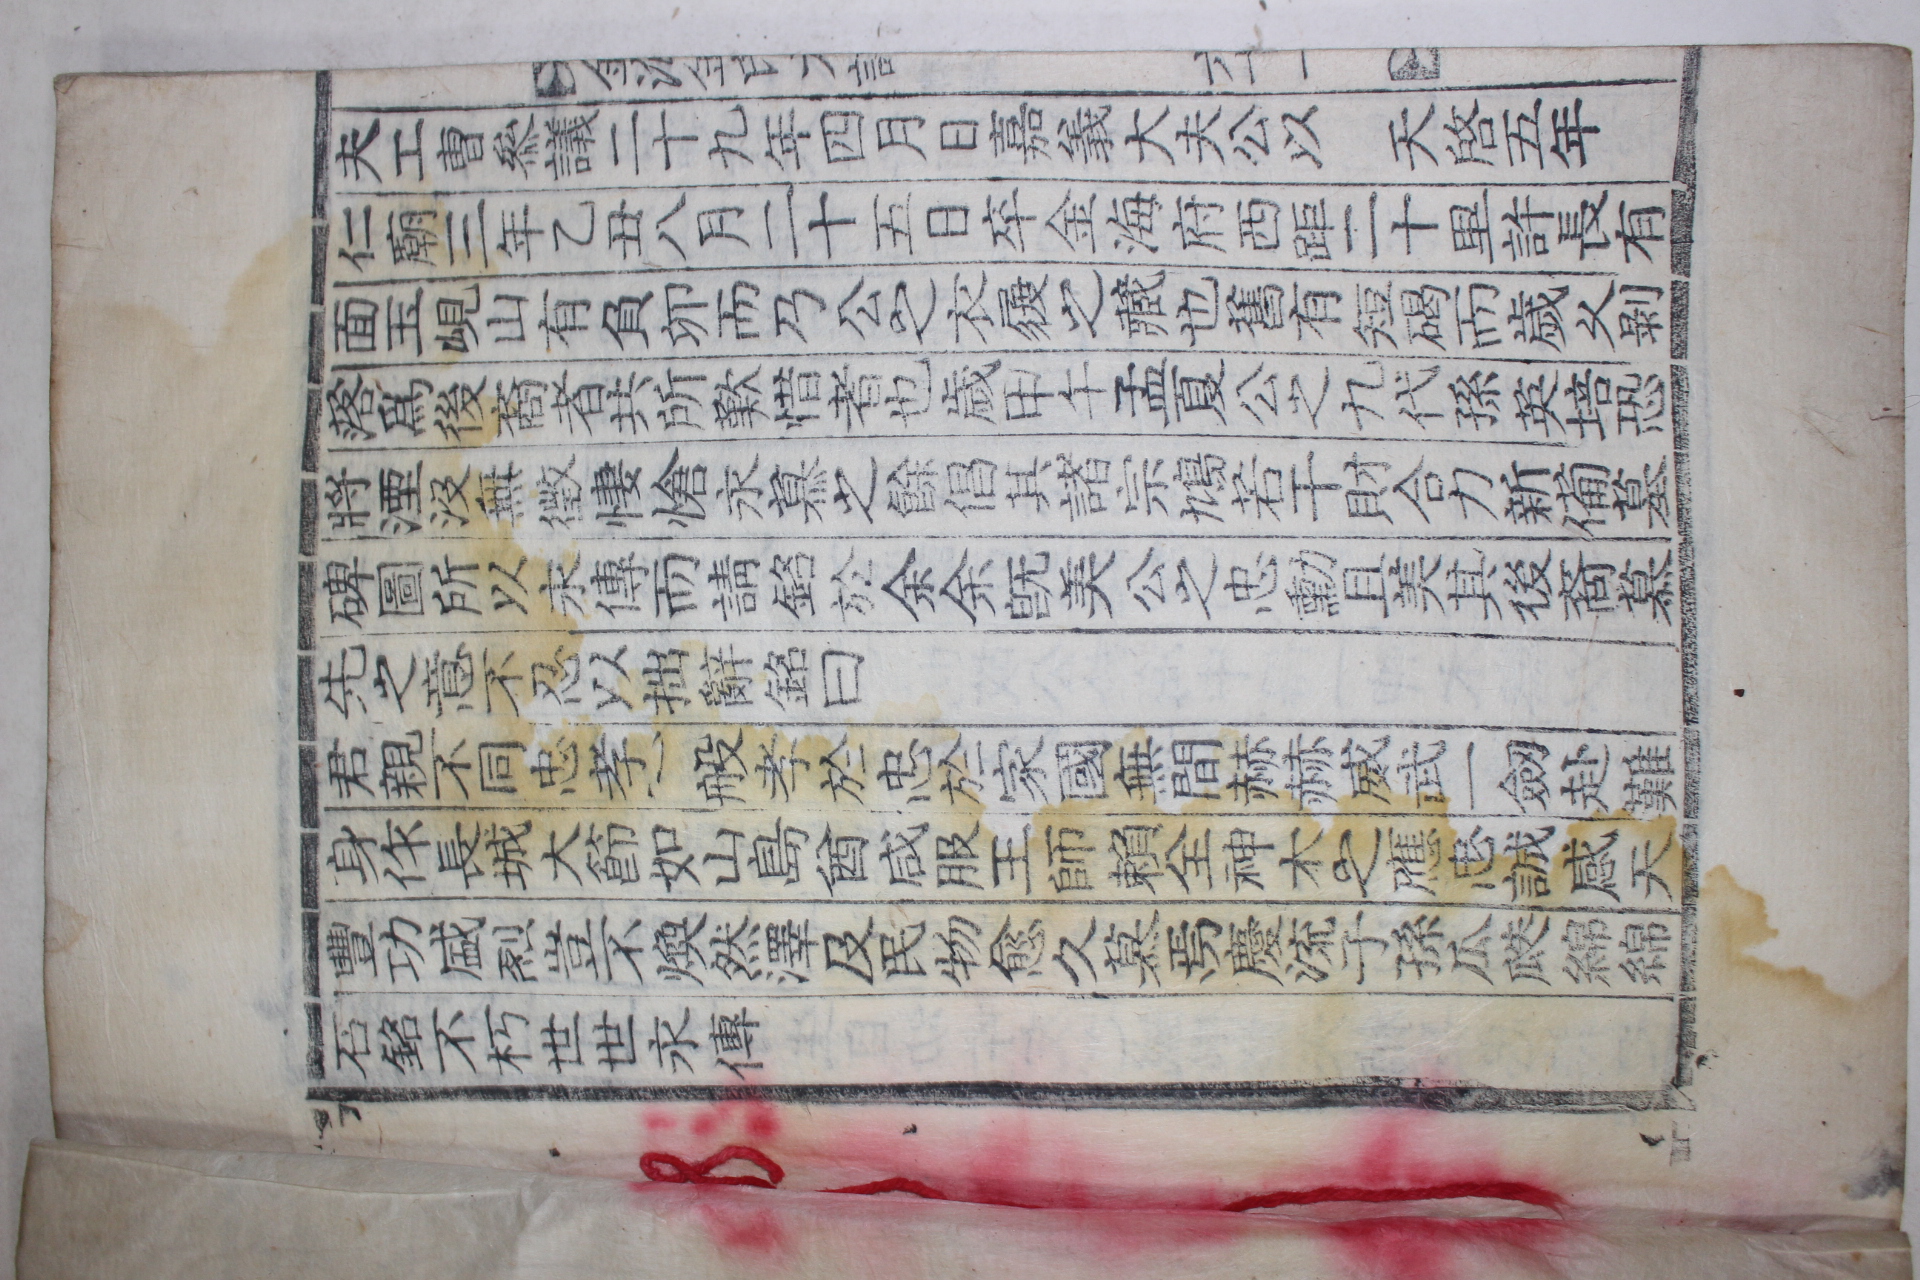 夫工曹參議二十九年四月日嘉義大夫公以 天啓五年
仁廟三年乙丑八月二十五日卒金海府西距二十里許長有
面玉峴山有負卯而乃公之衣履之藏也舊有短碣而歲久剝
落爲後裔者共所歎惜者也歲甲午孟夏公之九代孫英培恐
將湮沒無徵悽愴永慕之餘倡其諸宗鳩若干財合力新備墓
碑圖所以永傳而請銘於余余旣美公之忠勳且美其後裔慕
先之意不忍以拙辭銘曰
君親不同忠孝一般孝於忠於家國無間赫赫威武一劒赴難
身作長城大節如山島酋咸服王師賴全神木之應忠誠感天
豐功盛烈豈不煥然澤及民物愈久慕焉慶流子孫瓜瓞綿綿
石銘不朽世世永傳